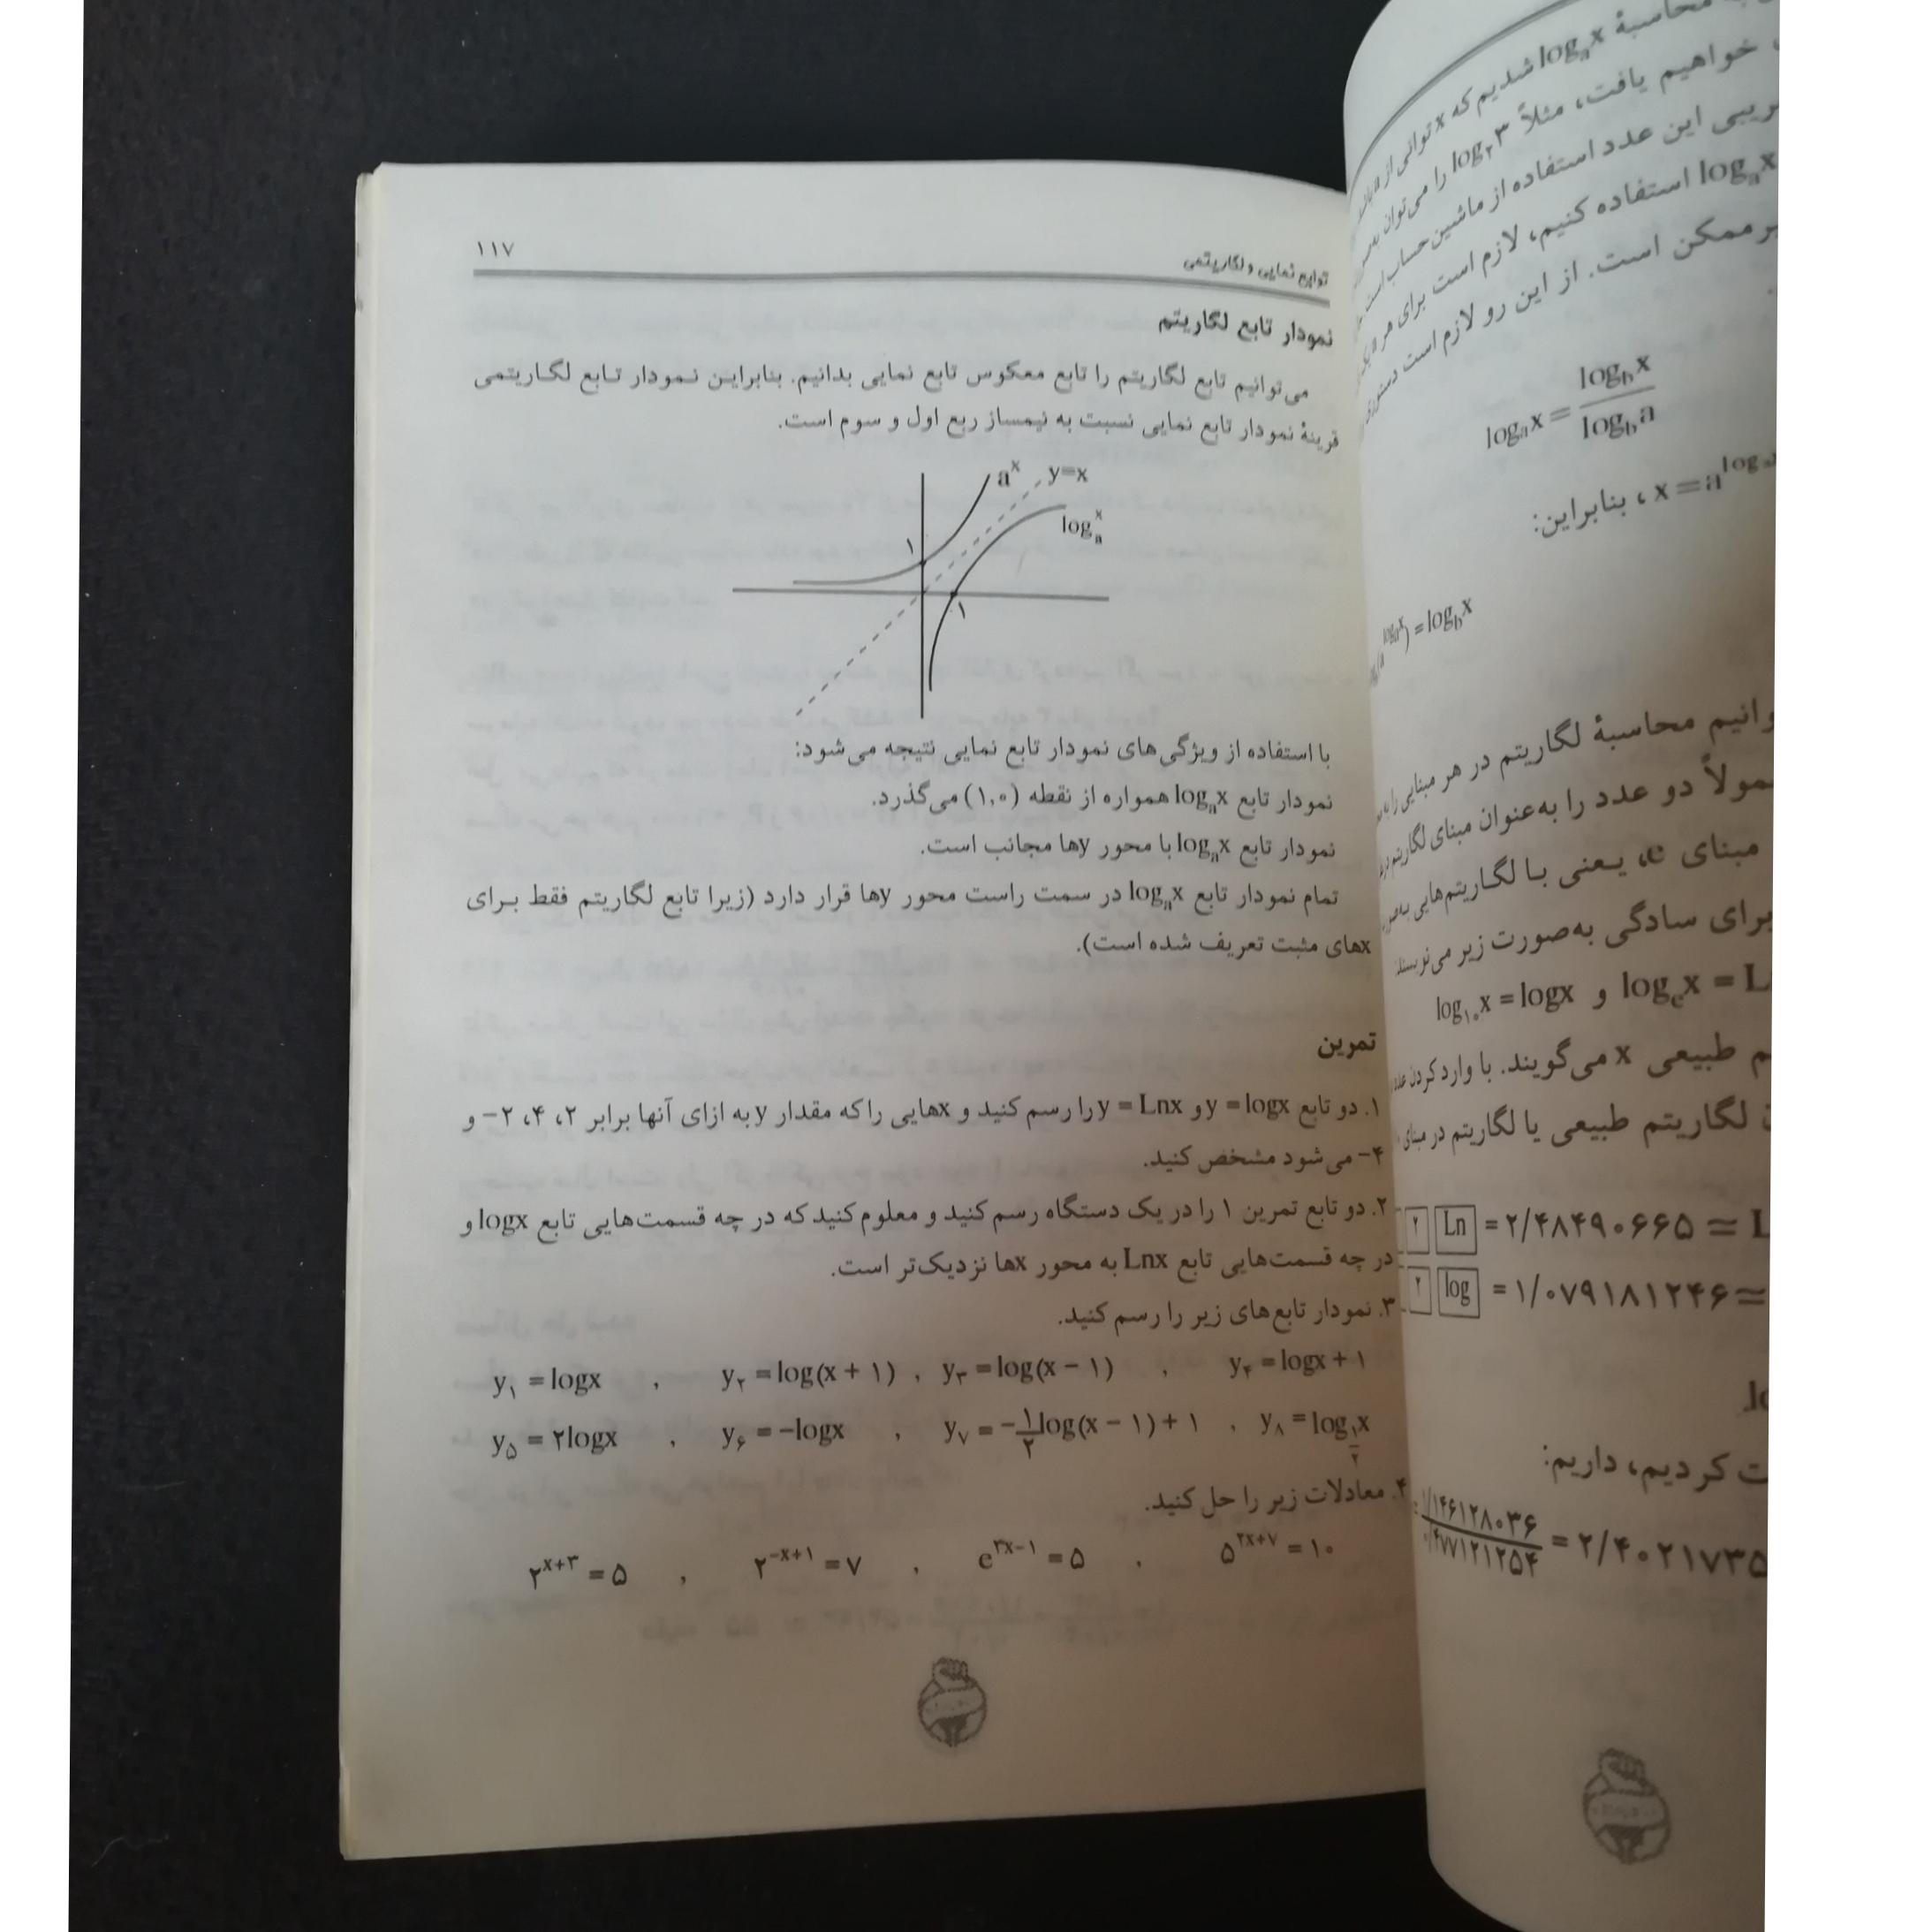 ۱۱۷
توابع نمایی و لگاریتمی
نمودار تابع لگاریتم
می‌توانیم تابع لگاریتم را تابع معکوس تابع نمایی بدانیم. بنابراین نمودار تابع لگاریتمی
قرینهٔ نمودار تابع نمایی نسبت به نیمساز ربع اول و سوم است.
aˣ y=x
logₐˣ
۱
۱
با استفاده از ویژگی‌های نمودار تابع نمایی نتیجه می‌شود:
نمودار تابع logₐx همواره از نقطه (۱,۰) می‌گذرد.
نمودار تابع logₐx با محور yها مجانب است.
تمام نمودار تابع logₐx در سمت راست محور yها قرار دارد (زیرا تابع لگاریتم فقط برای
xهای مثبت تعریف شده است).
تمرین
۱. دو تابع y = logx و y = Lnx را رسم کنید و xهایی را که مقدار y به ازای آنها برابر ۲، ۴، ۲− و
۴− می‌شود مشخص کنید.
۲. دو تابع تمرین ۱ را در یک دستگاه رسم کنید و معلوم کنید که در چه قسمت‌هایی تابع logx و
در چه قسمت‌هایی تابع Lnx به محور xها نزدیک‌تر است.
۳. نمودار تابع‌های زیر را رسم کنید.
y₁ = logx , y₂ = log(x + ۱) , y₃ = log(x − ۱) , y₄ = logx + ۱
y₅ = ۲logx , y₆ = −logx , y₇ = −۱/۲ log(x − ۱) + ۱ , y₈ = log_{۱/۲} x
۴. معادلات زیر را حل کنید.
۲^{x+۳} = ۵ , ۲^{−x+۱} = ۷ , e^{۳x−۱} = ۵ , ۵^{۲x+۷} = ۱۰
محاسبهٔ logₐx شدیم که x توانی از a
خواهیم یافت، مثلاً log₂۳ را می‌توان
این عدد استفاده از ماشین حساب است
logₐx استفاده کنیم، لازم است برای هر
ممکن است. از این رو لازم است
logₐx = log_b x / log_b a
x = a^{log , بنابراین:
) = log_b x
محاسبهٔ لگاریتم در هر مبنایی را
دو عدد را به‌عنوان مبنای لگاریتم
مبنای e، یعنی با لگاریتم‌هایی
برای سادگی به‌صورت زیر می‌نویسند
log₁₀x = logx و logₑx = L
طبیعی x می‌گویند. با وارد کردن
لگاریتم طبیعی یا لگاریتم در مبنای
۲ Ln = ۲/۴۸۴۹۰۶۶۵ ≃ L
۲ log = ۱/۰۷۹۱۸۱۲۴۶ ≃
کردیم، داریم:
۱/۱۴۶۱۲۸۰۳۶ / ۰/۴۷۷۱۲۱۲۵۴ = ۲/۴۰۲۱۷۳۵